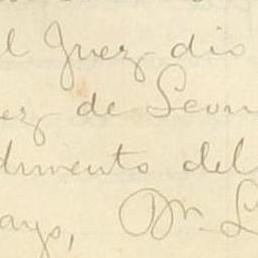 l Juez dio
ez de Leon
dimento del
ays, Dn L